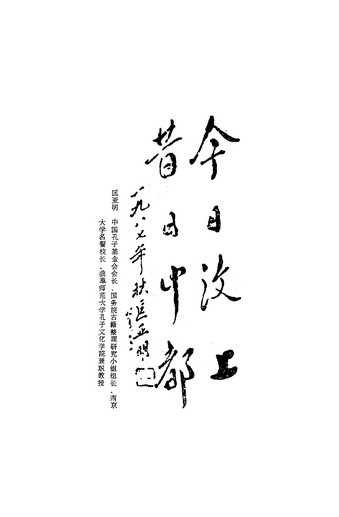 今日汶上
昔日中都
一九八七年秋匡亚明
匡亚明 中国孔子基金会会长、国务院古籍整理研究小组组长、南京
大学名誉校长、曲阜师范大学孔子文化学院兼职教授